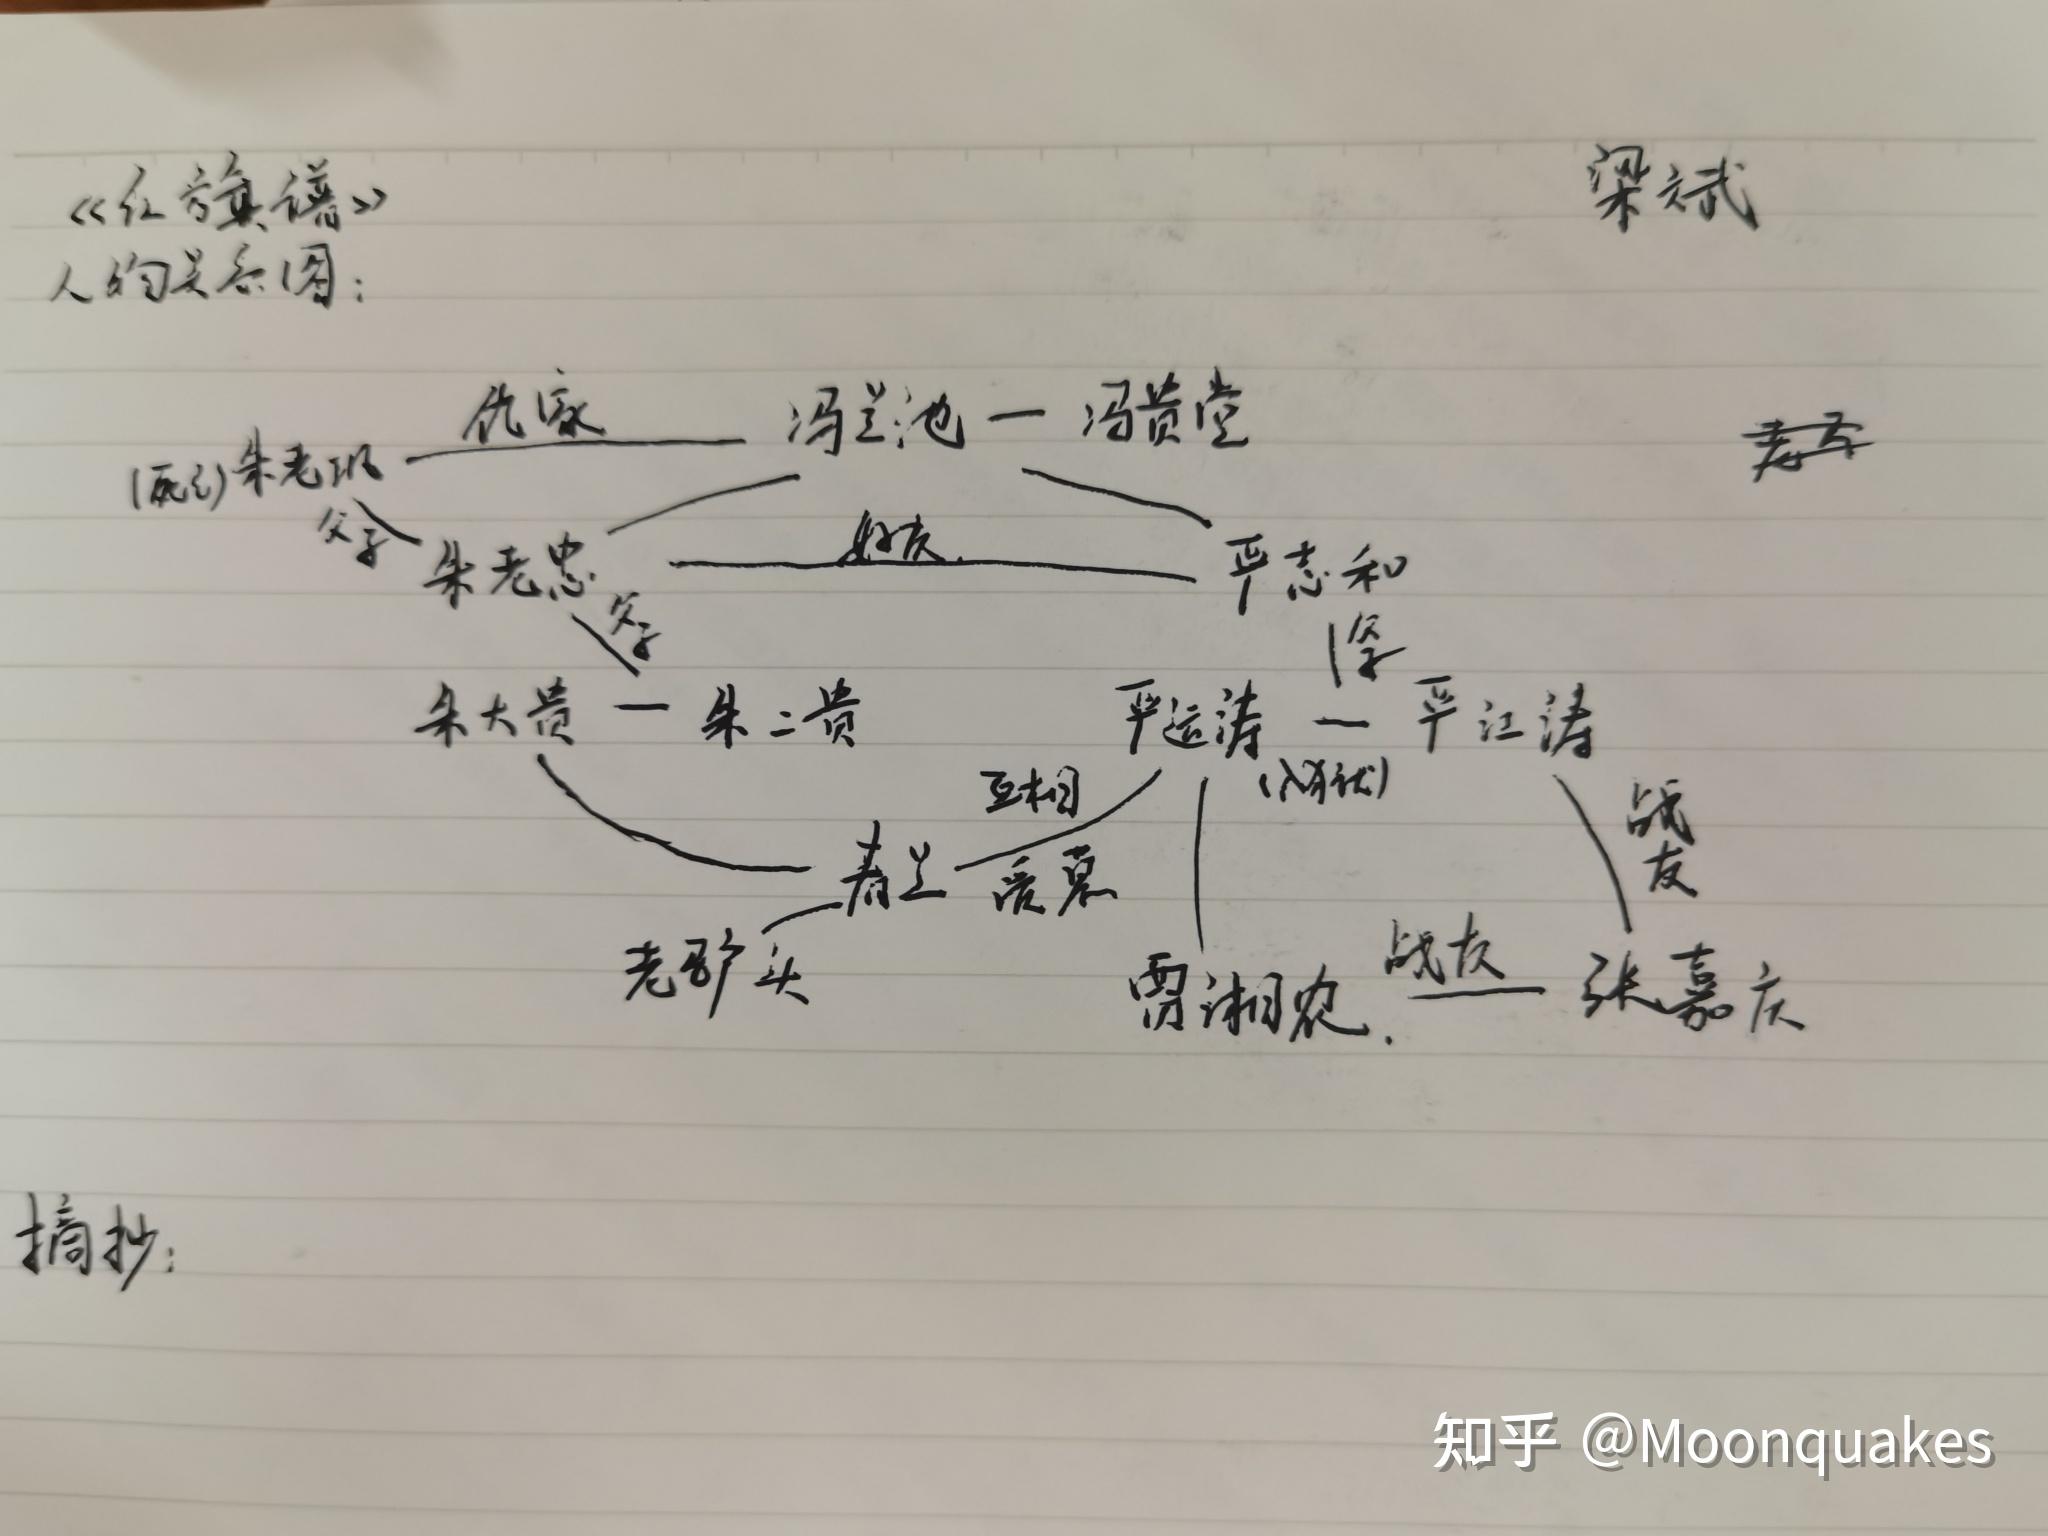 《红旗谱》
梁斌
人的关系图：
仇家
冯兰池 — 冯贵堂
(死亡) 朱老巩
父子
好友
朱老忠
严志和
父子
父子
朱大贵 — 朱二贵
严运涛 — 严江涛
(入狱)
互相
战友
春兰
爱慕
老驴头
战友
贾湘农.
张嘉庆
摘抄：
知乎 @Moonquakes